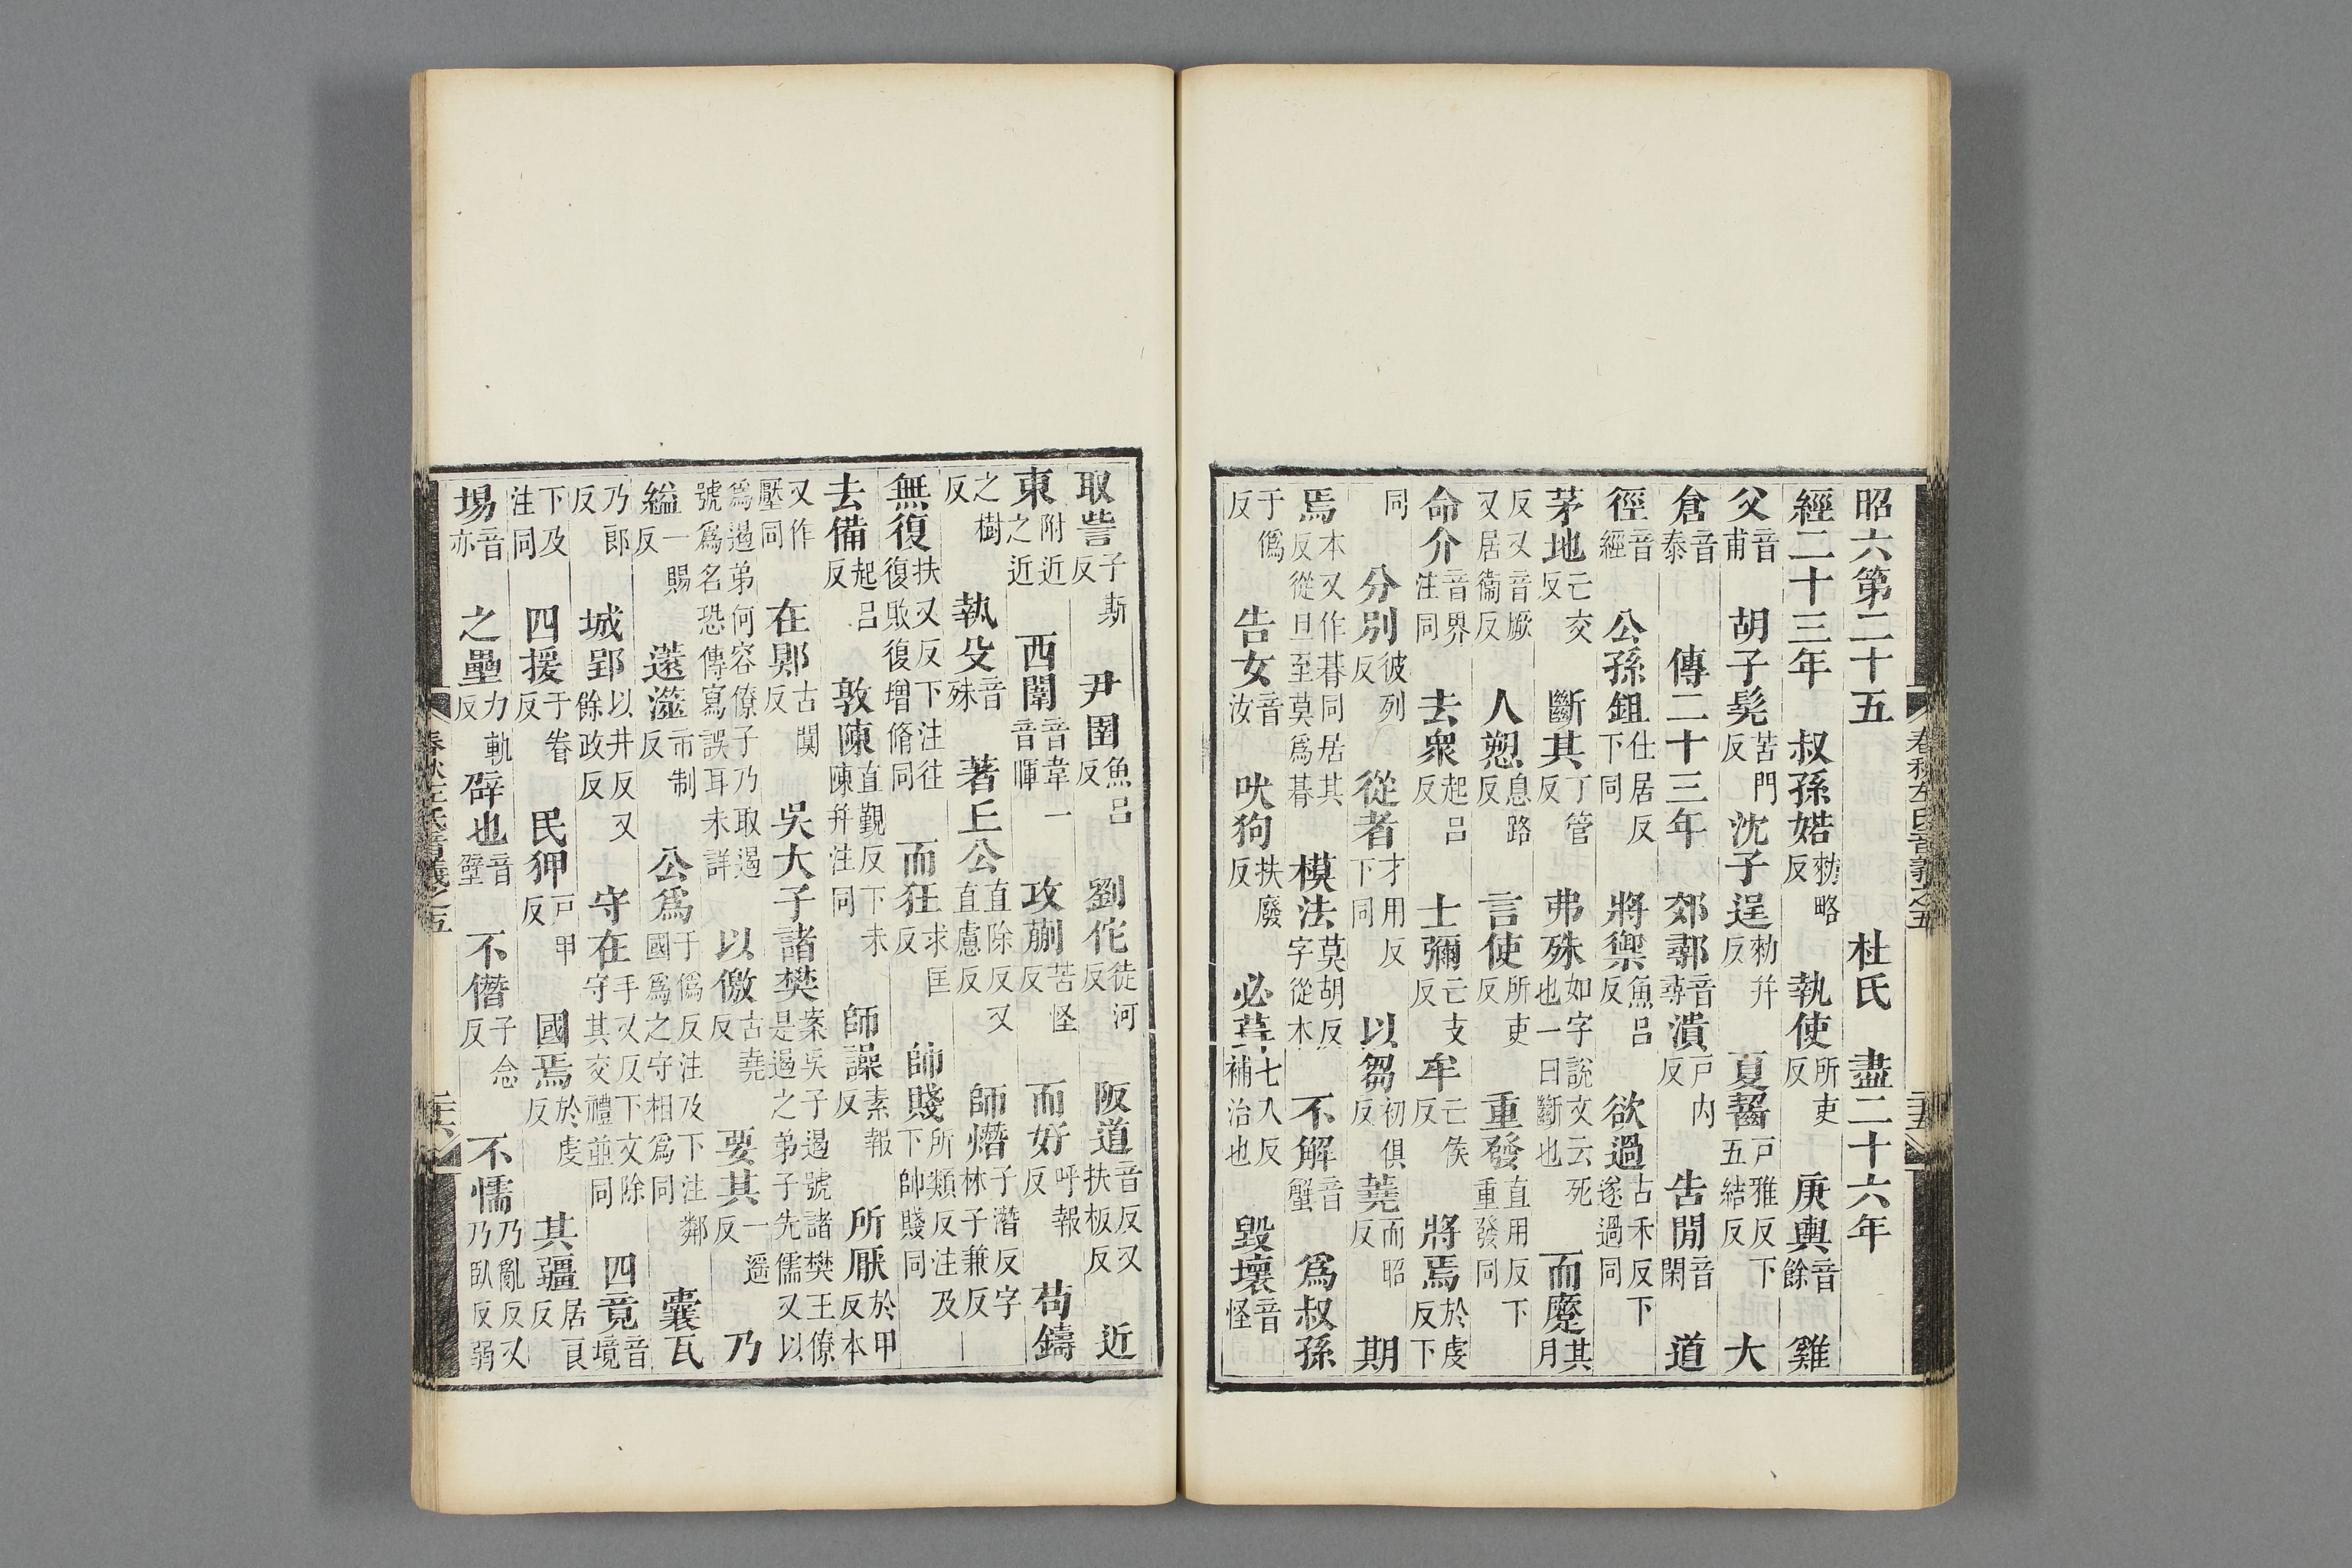 昭六第二十五 杜氏 盡二十六年
經二十三年 叔孫婼勑略反 執使所吏反 庚輿音餘 雞
父音甫 胡子髡苦門反 沈子逞勑井反 夏齧戶雅反下五結反 大
倉音泰 傳二十三年 郊鄩音尋 潰戶內反 告閒音閑 道
徑音經 公孫鉏仕居反下同 將禦魚呂反 欲過古禾反下遂過同
茅地亡交反 斷其丁管反 弗殊如字說文云死也一曰斷也 而蹷其月
反又音厥又居衞反 人愬息路反 言使所吏反 重發直用反下重發同
命介音界注同 去衆起呂反 士彌亡支反 牟亡侯反 將焉於虔反下
同 分別彼列反 從者才用反下同 以芻初俱反 蕘而昭反 期
焉本又作朞同居其反從旦至莫爲朞 模法莫胡反字從木 不解音蟹 爲叔孫
于僞反 告女音汝 吠狗扶廢反 必葺七入反補治也 毀壞音怪
春秋左氏音義之五 二十五
取訾子斯反 尹圉魚呂反 劉佗徒河反 阪道音反又扶板反 近
東附近之近 西闈音韋一音暉 攻蒯苦怪反 而好呼報反 苟鑄
之樹反 執殳音殊 著丘公直除反又直慮反 師熸子潛反字林子兼反
無復扶又反下注往復敗復增脩同 而狂求匡反 帥賤所類反注及下帥賤同
去備起呂反 敦陳直覲反下未陳幷注同 師譟素報反 所厭於甲反本
又作壓同 在郹古闃反 吳大子諸樊案吳子遏號諸樊王僚是遏之弟子先儒又以
爲遏弟何容僚子乃取遏號爲名恐傳寫誤耳未詳 以儌古堯反 要其一遥反 乃
縊一賜反 薳澨市制反 公爲于僞反注及下注鄰國爲之守相爲同 囊瓦
乃郎反 城郢以井反又餘政反 守在手又反下文除守其交禮並同 四竟音境
下及注同 四援于眷反 民狎戶甲反 國焉於虔反 其疆居良反
場音亦 之壘力軌反 辟也音壁 不僭子念反 不懦乃亂反又乃臥反弱
春秋左氏音義之五 二十六